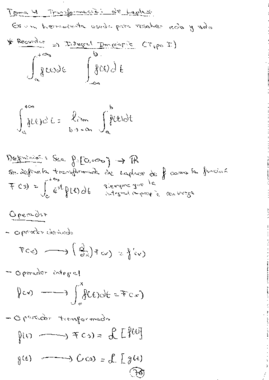 Tema 4 Transformación de Laplace
Es una herramienta usada para resolver
* Recordar → Integral Impropia (Tipo I)
∫_a^{+∞} f(t)dt   ∫_a^b f(t)dt
∫_a^{+∞} f(t)dt = lim_{b→+∞} ∫_a^b f(t)dt
Definición: Sea f:[0,+∞) → ℝ
se define la transformada de Laplace de f como la función
F(s) = ∫_0^{+∞} e^{-st} f(t)dt siempre que la
integral impropia converge
Operador
- Operador derivada
F(x) → (d/dx) f(x) = f'(x)
- Operador integral
f(x) → ∫ f(t)dt = F(x)
- Operador transformada
f(t) → F(s) = ℒ [f(t)]
g(t) → G(s) = ℒ [g(t)